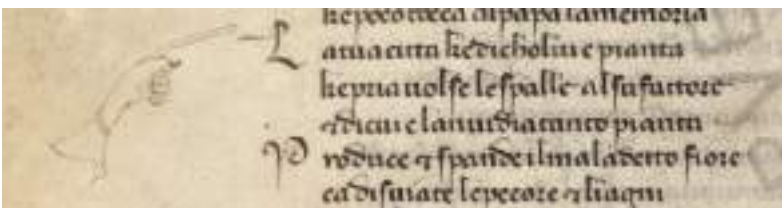 kepoco tocca alpapa lamemoria
L atua citta kedicholiu e pianta
kepria uolse lespalle alsufattore
⁊dicui e lanuidia tanto pianta
P roduce ⁊ spande ilmaladetto fiore
ca disuiate lepecore ⁊ liagni